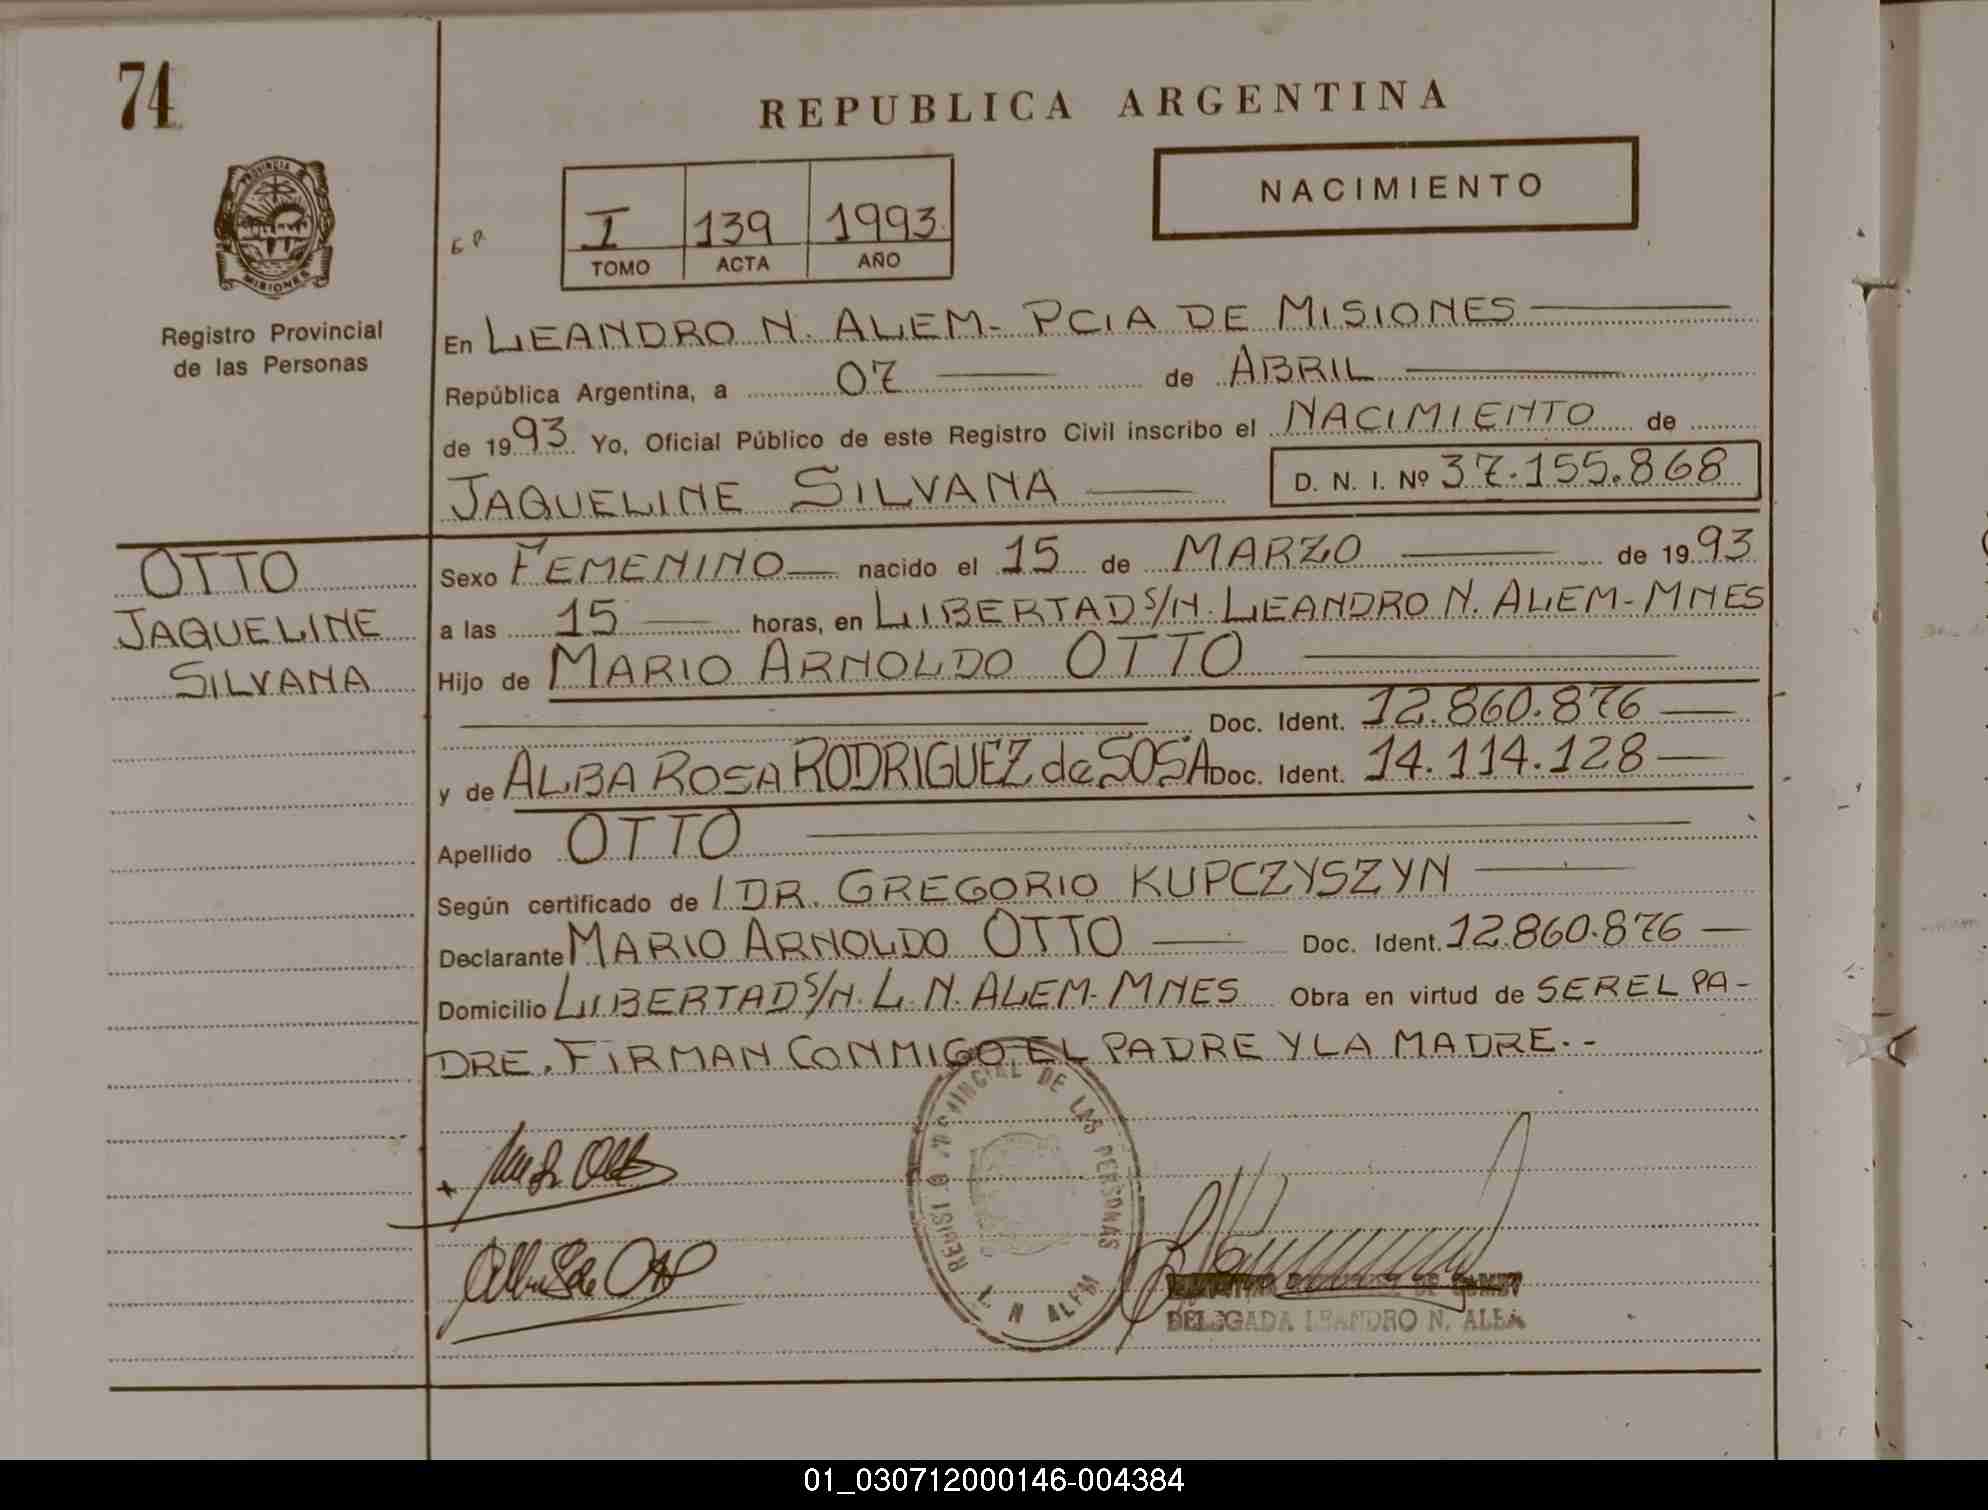 74
REPUBLICA ARGENTINA
NACIMIENTO
I 139 1993
TOMO ACTA AÑO
PROVINCIA DE
MISIONES
Registro Provincial
de las Personas
En LEANDRO N. ALEM - PCIA DE MISIONES
República Argentina, a 07 de ABRIL
de 1993 Yo, Oficial Público de este Registro Civil inscribo el NACIMIENTO de
JAQUELINE SILVANA D. N. I. Nº 37.155.868
OTTO
JAQUELINE
SILVANA
Sexo FEMENINO nacido el 15 de MARZO de 1993
a las 15 horas, en LIBERTAD S/N. LEANDRO N. ALEM - MNES
Hijo de MARIO ARNOLDO OTTO
Doc. Ident. 12.860.876
y de ALBA ROSA RODRIGUEZ de SOSA Doc. Ident. 14.114.128
Apellido OTTO
Según certificado de / DR. GREGORIO KUPCZYSZYN
Declarante MARIO ARNOLDO OTTO Doc. Ident. 12.860.876
Domicilio LIBERTAD S/N. L. N. ALEM - MNES Obra en virtud de SER EL PA-
DRE. FIRMAN CONMIGO EL PADRE Y LA MADRE.-
REGISTRO PROVINCIAL DE LAS PERSONAS
L. N. ALEM
DELEGADA LEANDRO N. ALEM
01_030712000146-004384